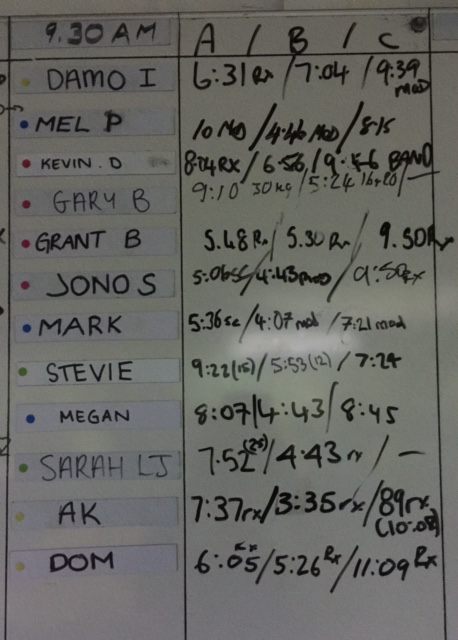 9.30 AM A / B / C
DAMO I 6:31 Rx / 7:04 / 9:39 mod
MEL P 10 MOD / 4:46 MOD / 8:15
KEVIN. D 8:04 RX / 6:56 / 9:56 BAND
GARY B 9:10 30kg / 5:24 16+20 / —
GRANT B 5.48 Rx / 5.30 Rx / 9.50 Rx
JONO S 5:06 sc / 4:43 mod / 9:50 Rx
MARK 5:36 sc / 4:07 mod / 7:21 mod
STEVIE 9:22 (15) / 5:53 (12) / 7:24
MEGAN 8:07 / 4:43 / 8:45
SARAH LJ 7.52 (25) / 4.43 rx / —
AK 7:37 rx / 3:35 rx / 89 rx (10:08)
DOM 6:05 Rx / 5:26 Rx / 11:09 Rx